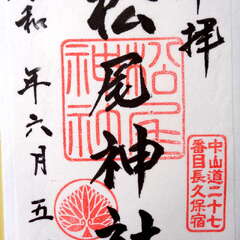 拝
松尾神社
松尾
神社
和 年六月五
中山道二十七
番目長久保宿